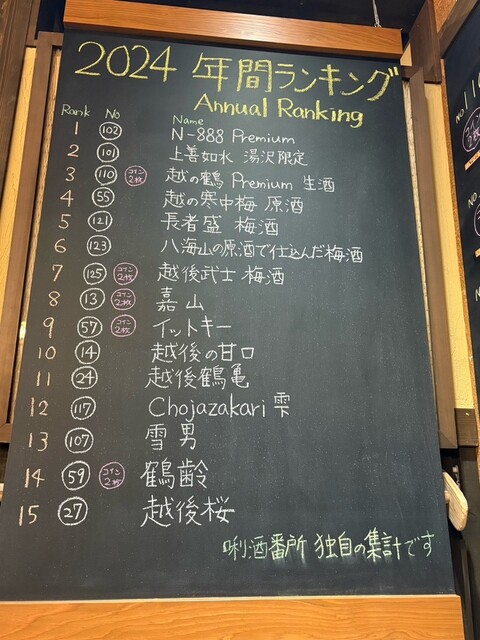 2024 年間ランキング
Annual Ranking
Rank No Name
1 102 N-888 Premium
2 101 上善如水 湯沢限定
3 110 コイン2枚 越の鶴 Premium 生酒
4 55 越の寒中梅 原酒
5 121 長者盛 梅酒
6 123 八海山の原酒で仕込んだ梅酒
7 125 コイン2枚 越後武士 梅酒
8 13 コイン2枚 嘉山
9 57 コイン2枚 イットキー
10 14 越後の甘口
11 24 越後鶴亀
12 117 Chojazakari 雫
13 107 雪男
14 59 コイン2枚 鶴齢
15 27 越後桜
唎酒番所 独自の集計です